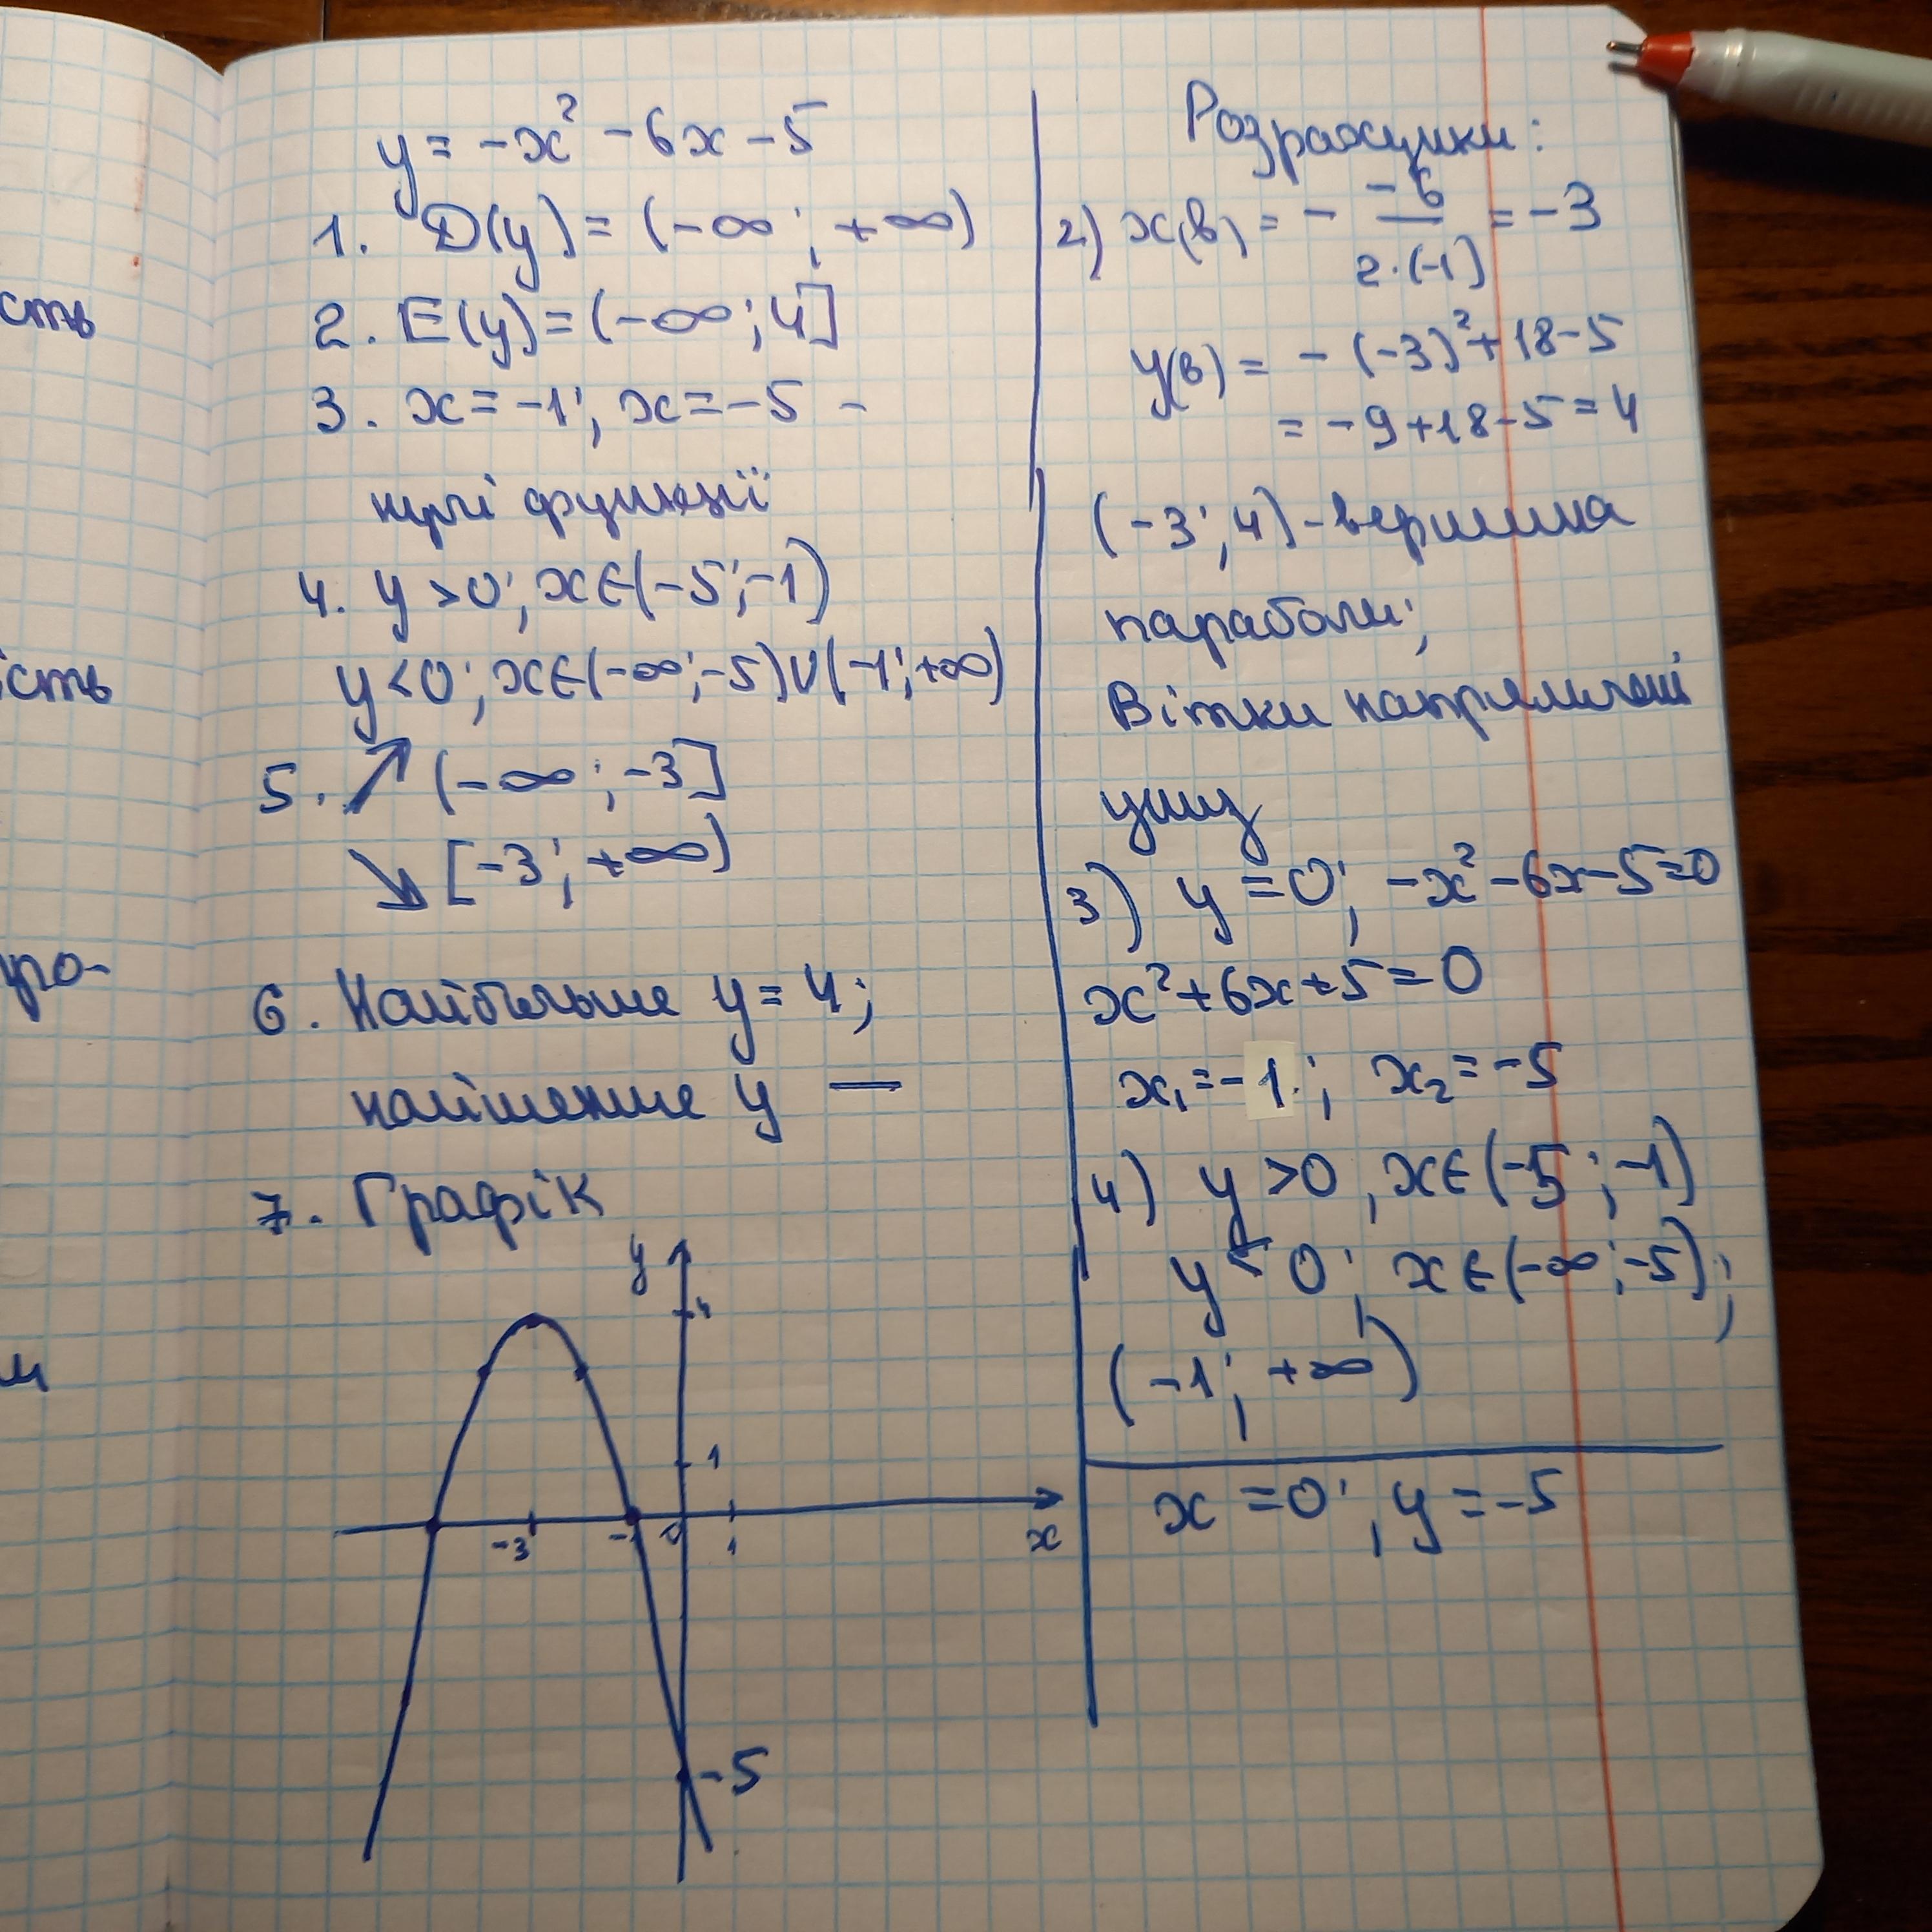 сть
ість
уро-
м
y = -x² - 6x - 5
1. D(y) = (-∞; +∞)
2. E(y) = (-∞; 4]
3. x = -1; x = -5 -
нулі функції
4. y > 0; x ∈ (-5; -1)
y < 0; x ∈ (-∞; -5) ∪ (-1; +∞)
5. ↗ (-∞; -3]
↘ [-3; +∞)
6. Найбільше y = 4;
найменше y —
7. Графік
y
4
1
-3 -1 0 1 x
-5
Розрахунки:
2) x(в) = - -6/2·(-1) = -3
y(в) = - (-3)² + 18 - 5
= -9 + 18 - 5 = 4
(-3; 4) - вершина
параболи;
Вітки напрямлені
униз
3) y = 0; -x² - 6x - 5 = 0
x² + 6x + 5 = 0
x₁ = -1; x₂ = -5
4) y > 0, x ∈ (-5; -1)
y < 0; x ∈ (-∞; -5);
(-1; +∞)
x = 0; y = -5